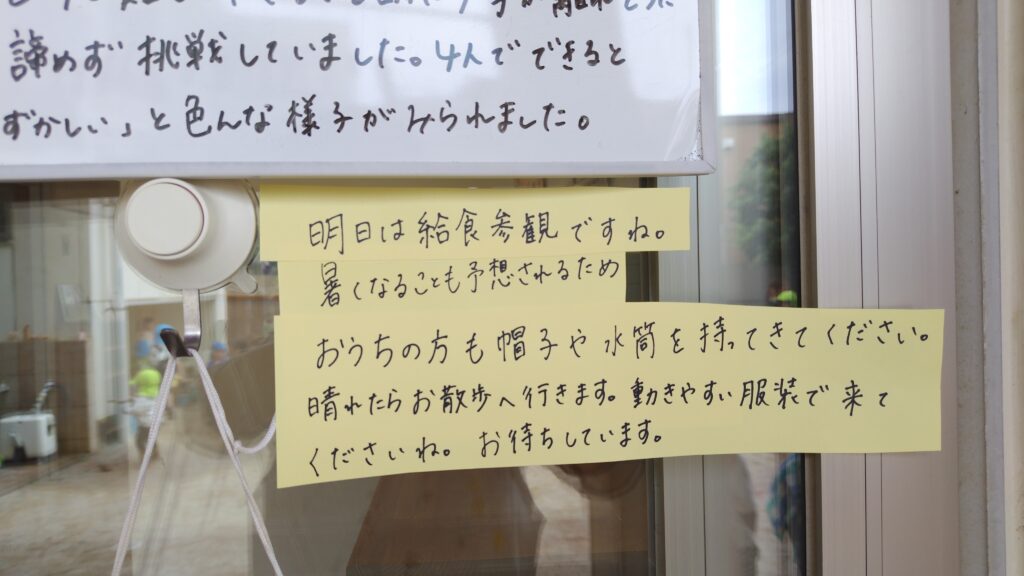 諦めず挑戦していました。4人でできると
ずかしい」と色んな様子がみられました。
明日は給食参観ですね。
暑くなることも予想されるため
おうちの方も帽子や水筒を持ってきてください。
晴れたらお散歩へ行きます。動きやすい服装で来て
くださいね。お待ちしています。